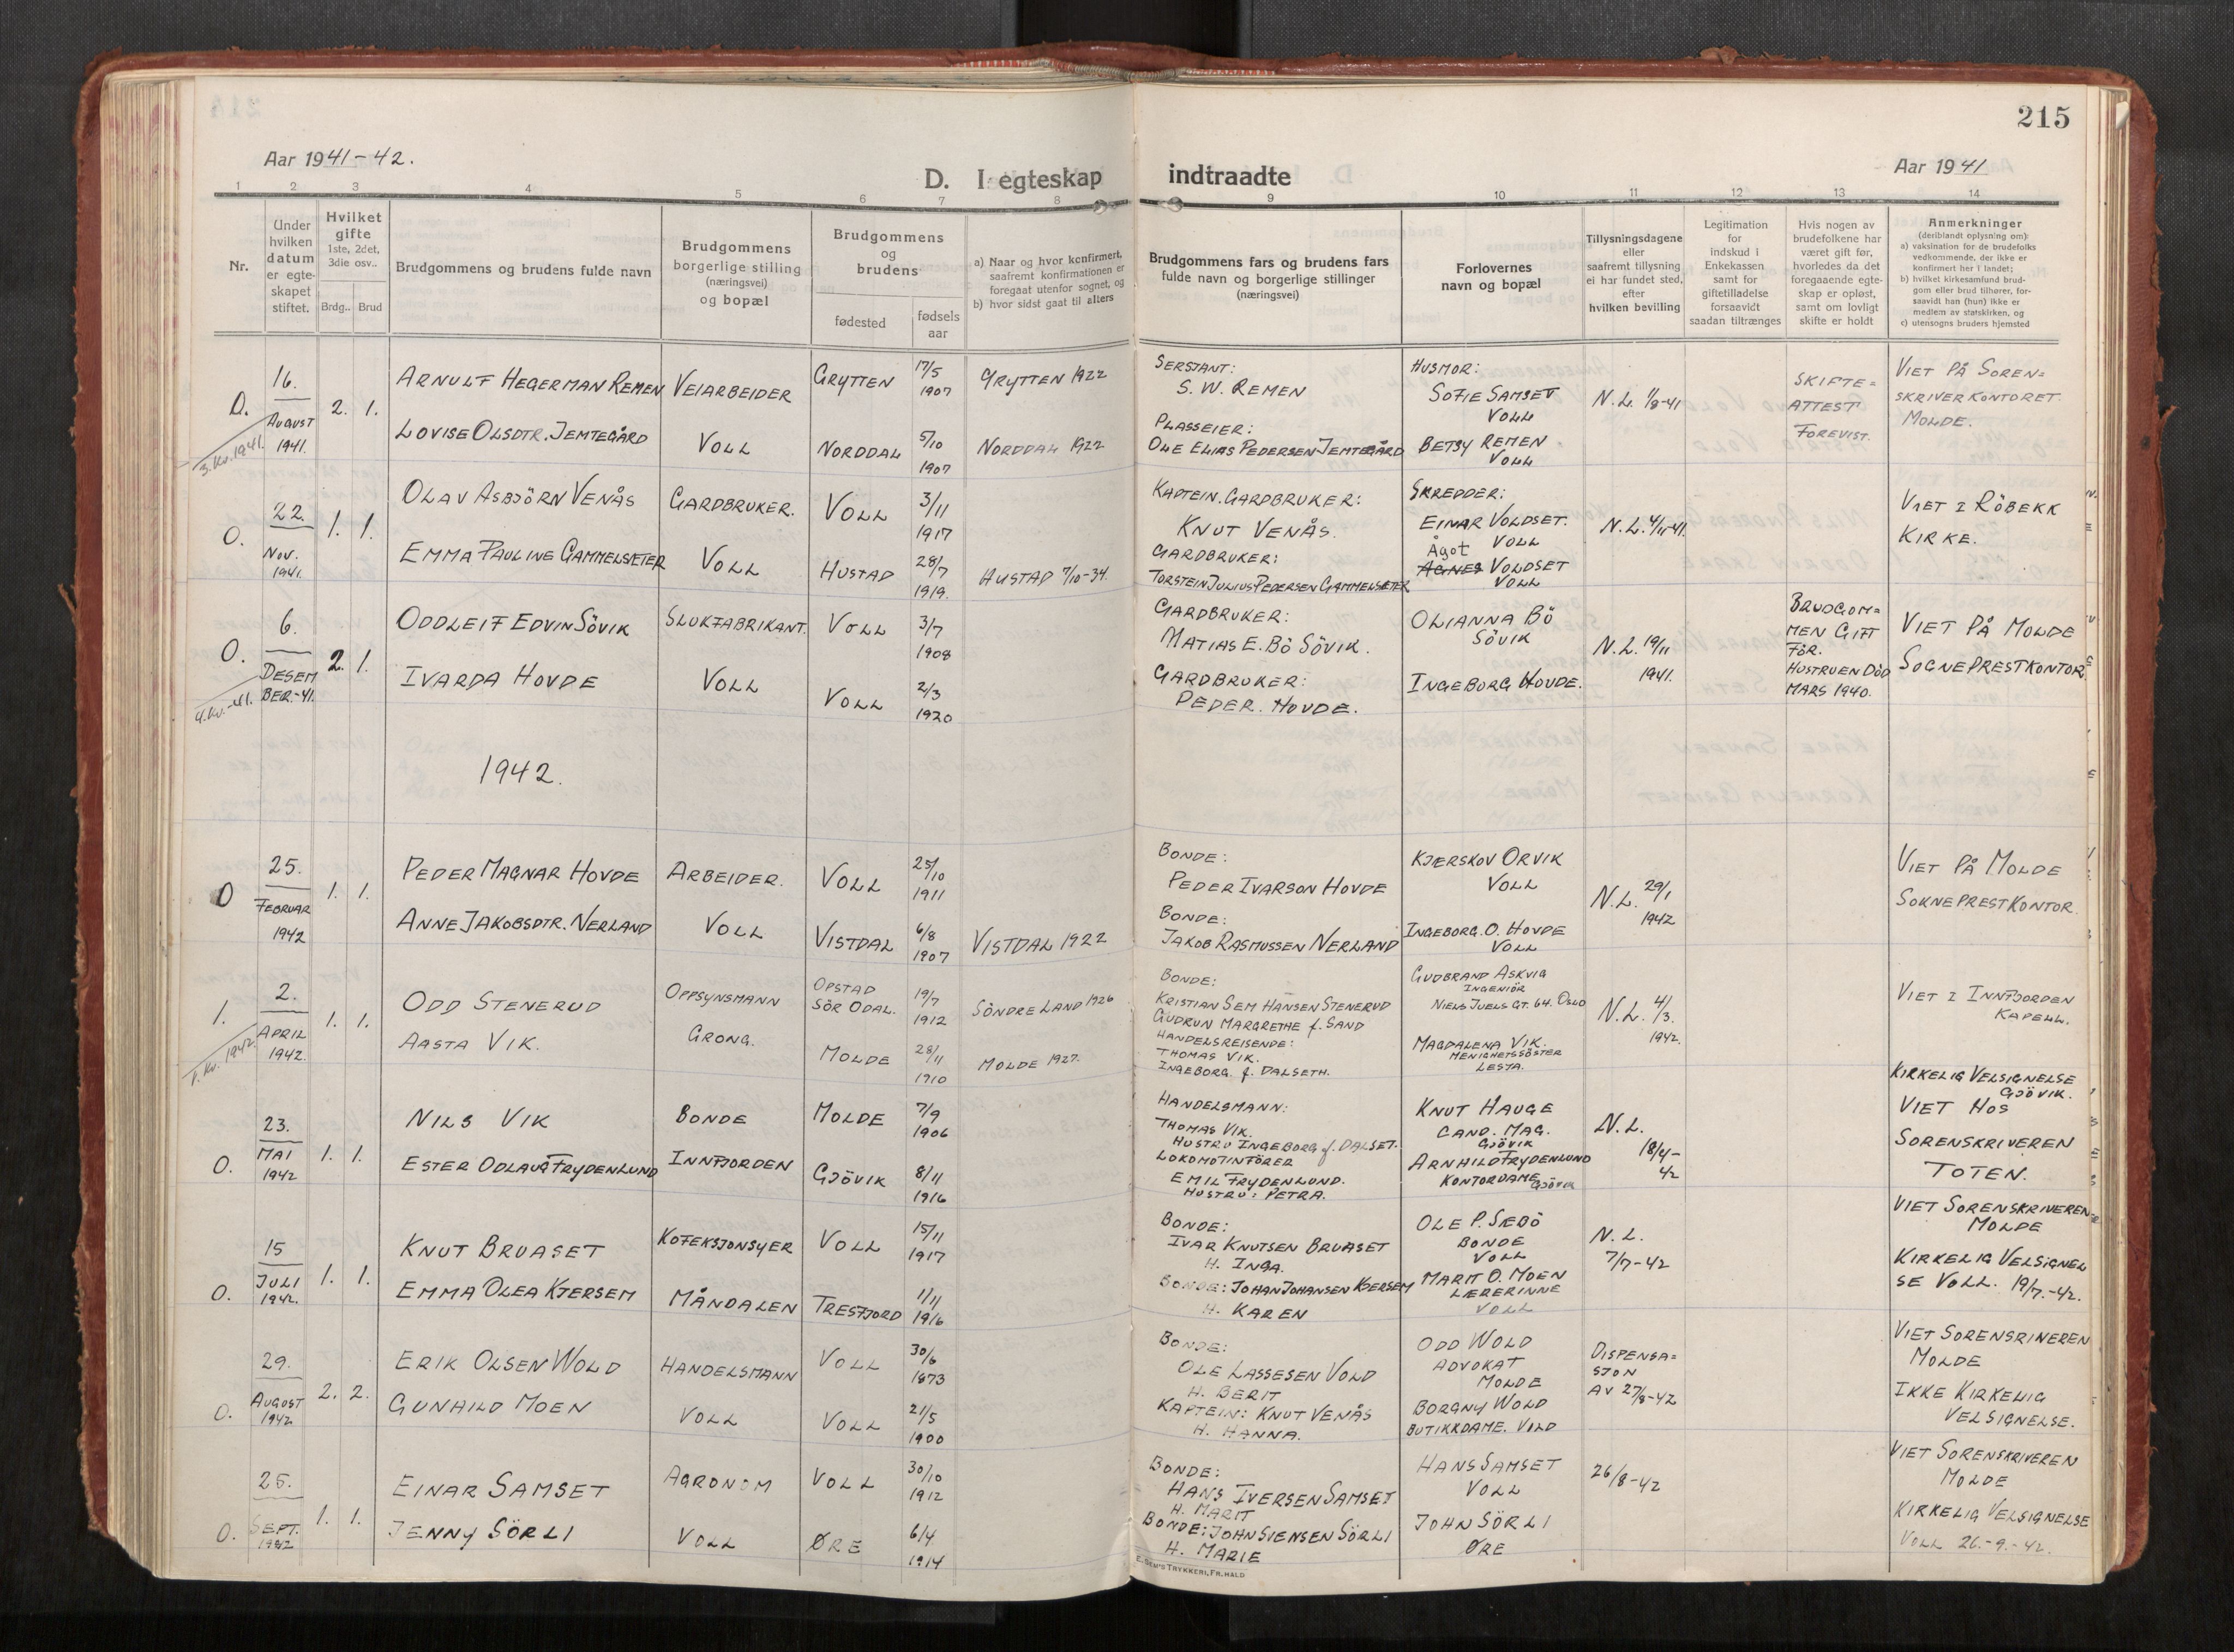 215
Aar 1941-42.
D. I egteskap indtraadte
Aar 1941
1 2 3 4 5 6 7 8 9 10 11 12 13 14
Nr.
Under hvilken datum er egteskapet stiftet.
Hvilket gifte 1ste, 2det, 3die osv..
Brdg.. Brud
Brudgommens og brudens fulde navn
Brudgommens borgerlige stilling (næringsvei) og bopæl
Brudgommens og brudens
fødested
fødsels aar
a) Naar og hvor konfirmert, saafremt konfirmationen er foregaat utenfor sognet, og
b) hvor sidst gaat til alters
Brudgommens fars og brudens fars fulde navn og borgerlige stillinger (næringsvei)
Forlovernes navn og bopæl
Tillysningsdagene eller saafremt tillysning ei har fundet sted, efter hvilken bevilling
Legitimation for indskud i Enkekassen samt for giftetilladelse forsaavidt saadan tiltrænges
Hvis nogen av brudefolkene har været gift før, hvorledes da det foregaaende egteskap er opløst, samt om lovligt skifte er holdt
Anmerkninger (deriblandt oplysning om):
a) vaksination for de brudefolks vedkommende, der ikke er konfirmert her i landet;
b) hvilket kirkesamfund brudgom eller brud tilhører, forsaavidt han (hun) ikke er medlem av statskirken, og
c) utensogns bruders hjemsted
0.
3. Kv. 1941.
16. August 1941.
2. 1.
Arnulf Hegerman Remen
Lovise Olsdtr. Jemtegård
Veiarbeider
Voll
Grytten
Norddal
17/5 1907
5/10 1907
Grytten 1922
Norddal 1922
Sersjant:
S. W. Remen
Plasseier:
Ole Elias Pedersen Jemtegård
Husmor:
Sofie Samset
Voll
Betsy Remen
Voll
N. L. 1/8-41
Skifte=
attest
forevist.
Viet på Soren=
skriverkontoret
Molde.
0.
22. Nov. 1941.
1. 1.
Olav Asbjörn Venås
Emma Pauline Gammelsæter
Gardbruker.
Voll
Voll
Hustad
3/11 1917
28/7 1919.
Hustad 7/10-34.
Kaptein. Gardbruker:
Knut Venås.
Gardbruker:
Torstein Julius Pedersen Gammelsæter
Skredder:
Einar Voldset.
Voll
Ågot
Agnes Voldset
Voll
N. L. 4/11-41.
Viet i Röbekk
Kirke.
0.
4. Kv.-41.
6. Desem
ber.-41.
2. 1.
Oddleif Edvin Sövik
Ivarda Hovde
Slukfabrikant.
Voll
Voll
Voll
3/7 1908
2/3 1920
Gardbruker:
Matias E. Bö Sövik.
Gardbruker:
Peder. Hovde.
Olianna Bö
Sövik
Ingeborg Hovde.
N. L. 19/11
1941.
Brudgom=
men gift
för.
Hustruen död
mars 1940.
Viet på Molde
Sogneprestkontor.
1942.
0
25. Februar 1942
1. 1.
Peder Magnar Hovde
Anne Jakobsdtr. Nerland
Arbeider.
Voll
Voll
Vistdal
25/10 1911
6/8 1907
Vistdal 1922
Bonde:
Peder Ivarson Hovde
Bonde:
Jakob Rasmussen Nerland
Kjerskov Orvik
Voll
Ingeborg. O. Hovde
Voll
N. L. 29/1
1942
Viet på Molde
Sokneprestkontor.
1.
1. Kv. 1942.
2. April 1942.
1. 1.
Odd Stenerud
Aasta Vik.
Oppsynsmann
Grong.
Opstad
Sör Odal.
Molde
19/7 1912
28/11 1910
Söndre Land 1926
Molde 1927.
Bonde:
Kristian Sem Hansen Stenerud
Gudrun Margrethe f. Sand
Handelsreisende:
Thomas Vik.
Ingeborg f. Dalseth.
Gudbrand Askvig
Ingeniör
Niels Juels gt. 64. Oslo
Magdalena Vik.
Menighetssöster
Lesja.
N. L. 4/3.
1942.
Viet i Innfjorden
Kapell.
0.
23. Mai 1942
1. 1.
Nils Vik
Ester Odlaug Frydenlund
Bonde
Innfjorden
Molde
Gjövik
7/9 1906
8/11 1916
Handelsmann:
Thomas Vik.
Hustru Ingeborg f. Dalset.
Lokomotivförer
Emil Frydenlund.
Hustru: Petra.
Knut Hauge
Cand. Mag.
Gjövik
Arnhild Frydenlund
Kontordame Gjövik
N. L.
18/4-
42
Kirkelig velsignelse
Gjövik.
Viet hos
Sorenskriveren
Toten.
0.
15 Juli 1942.
1. 1.
Knut Bruaset
Emma Olea Kjersem
Kofeksjonsyer
Måndalen
Voll
Tresfjord
15/11 1917
1/11 1916
Bonde:
Ivar Knutsen Bruaset
H. Inga.
Bonde: Johan Johansen Kjersem
H. Karen
Ole P. Sæbö
Bonde
Voll
Marit O. Moen
Lærerinne
Voll
N. L.
7/7-42
Viet Sorenskriveren
Molde
Kirkelig velsignel
se Voll. 19/7.-42.
0.
29. August 1942
2. 2.
Erik Olsen Wold
Gunhild Moen
Handelsmann
Voll
Voll
Voll
30/6 1873
21/5 1900
Bonde:
Ole Lassesen Vold
H. Berit
Kaptein: Knut Venås
H. Hanna.
Odd Wold
Advokat
Molde
Borgny Wold
Butikkdame. Vold
Dispensa=
sjon
av 27/8-42
Viet Sorensriveren
Molde
Ikke kirkelig
velsignelse.
0.
25. Sept. 1942
1. 1.
Einar Samset
Jenny Sörli
Agronom
Voll
Voll
Øre
30/10 1912
6/4 1914
Bonde:
Hans Iversen Samset
H. Marit
Bonde: John Siensen Sörli
H. Marie
Hans Samset
Voll
John Sörli
Øre
26/8-42
Viet Sorenskriveren
Molde
Kirkelig velsignelse
Voll 26.-9.-42.
E. Sem's Trykkeri, Fr.hald